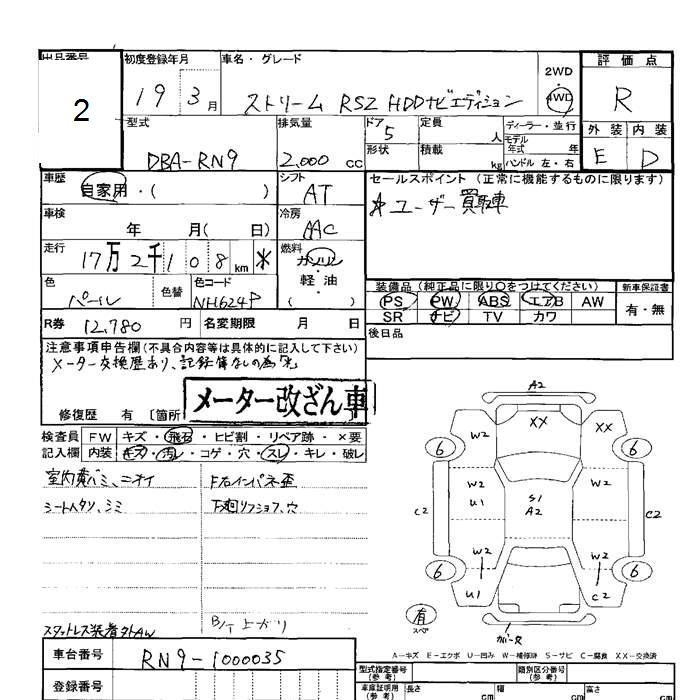 出品番号
2
初度登録年月
19 3月
車名・グレード
ストリーム RSZ HDDナビエディション
2WD
・
4WD
評価点
R
外装 内装
E D
型式
DBA-RN9
排気量
2,000 cc
ドア 5
形状
定員 人
積載 kg
ディーラー・並行
モデル年式 年
ハンドル 左・右
車歴
自家用・( )
シフト
AT
セールスポイント(正常に機能するものに限ります)
車検
年 月( 日)
冷房
AAC
走行
17万2千108km *
燃料
ガソリン
軽・油
( )
色
パール
色替
色コード
NH624P
装備品(純正品に限り○をつけてください)
新車保証書
PS PW ABS エアB AW
SR ナビ TV カワ
有・無
R券 12,780 円
名変期限 月 日
後日品
注意事項申告欄(不具合内容等は具体的に記入して下さい)
メーター交換歴あり、記録簿なしの為
メーター改ざん車
修復歴 有 〔箇所
検査員
記入欄
FW キズ・飛石・ヒビ割・リペア跡・×要
内装 キズ・汚レ・コゲ・穴・スレ・キレ・破レ
シートヘタリ、シミ
スタットレス装着 外AW
B/T上がり
A2
XX
XX
W2
6
6
W2
U1
S1
A2
W2
C2
C2
W2
W2
6
6
U1
C2
有
スペア
A-キズ E-エクボ U-凹み W-補修跡 S-サビ C-腐食 XX-交換済
車台番号
RN9-1000035
登録番号
型式指定番号
(参考)
類別区分番号
(参考)
車庫証明用
(参考)
長さ cm
幅 cm
高さ cm